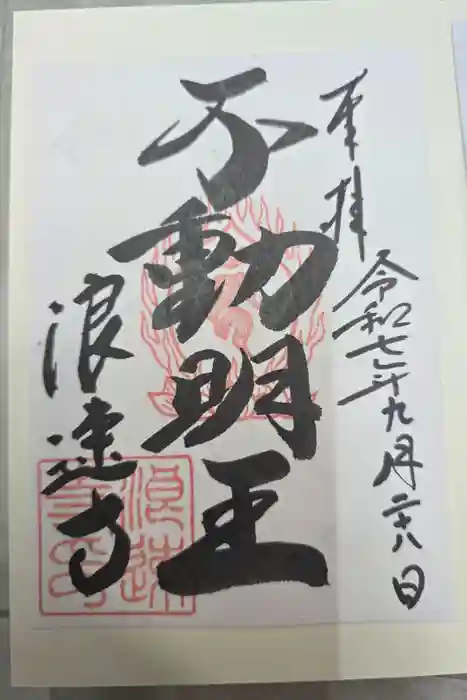 奉拝
令和七年九月二十八日
不動明王
浪速寺
浪速
寺印